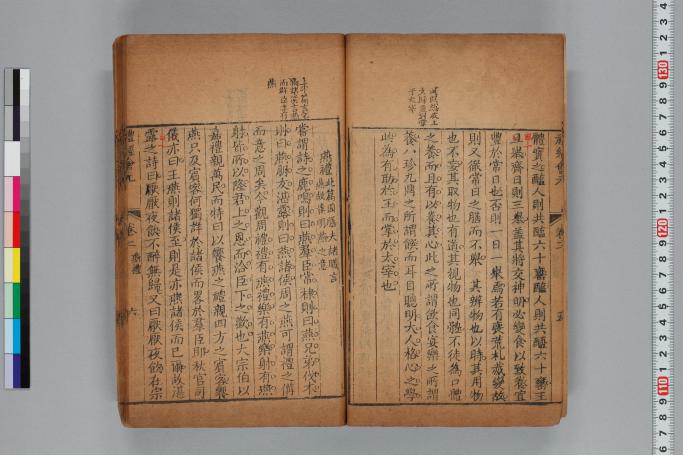 體實之醢人則共醢六十罋醯人則共醯六十罋王
且齋齊日則三舉蓋其將交神明必變食以致養宜
豐於常日也否則一日一舉焉若有喪荒札烖變故
則又徹常日之膳而不舉 其辨物也以時其用物
也不妄其取物也有道其視物也同體不徒為口體
之養而且有以養其心此之所謂飲食宴樂之所謂
養八珍九鼎之所謂饌而耳目聰明大人格心之學
此為有助於王而掌於太宰也
燕禮
此篇因膳夫諸職言
燕故推明燕之意
嘗謂詩之鹿鳴則曰燕羣臣常棣則曰燕兄弟伐木
則曰燕朋友湛露則曰燕諸侯周之燕可謂禮之備
而意之周矣今觀周禮禮有燕禮樂有燕樂射有燕
射皆所以隆君上之恩而洽臣下之歡也大宗伯以
嘉禮親萬民而特曰以饗燕之禮親四方之賓客饗
燕只及賓客何獨詳於諸侯而畧於羣臣耶秋官司
儀亦曰王燕則諸侯至則是亦燕諸侯而已嘗故湛
露之詩曰厭厭夜飲不醉無歸又曰厭厭夜飲在宗
卷二 燕禮
六